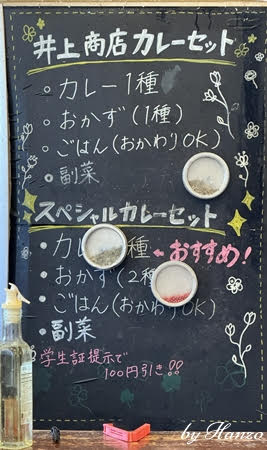 井上商店カレーセット
○ カレー1種
○ おかず(1種)
○ ごはん(おかわりOK)
○ 副菜
スペシャルカレーセット
● カレ 種 ←おすすめ!
● おかず(2種
● ごはん(おかわりOK)
● 副菜
学生証提示で
100円引き!!
by Hanzo